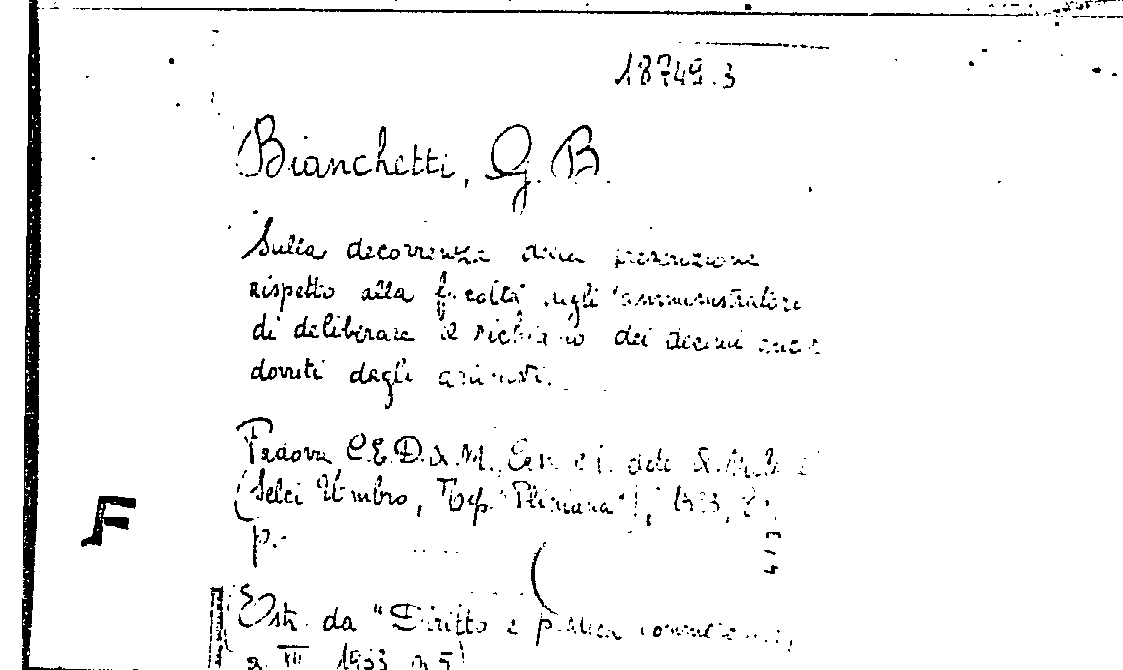 18749.3
Bianchetti, G. B.
Sulla decorrenza della prescrizione
rispetto alla facoltà degli amministratori
di deliberare il richiamo dei decimi
dovuti dagli azionisti.
Padova C.E.D.A.M.
(Selci Umbro, Tip. "Pliniana"), 1933,
p.
F
Estr. da "Diritto e pratica commerciale,
a. XII 1933 n. 5